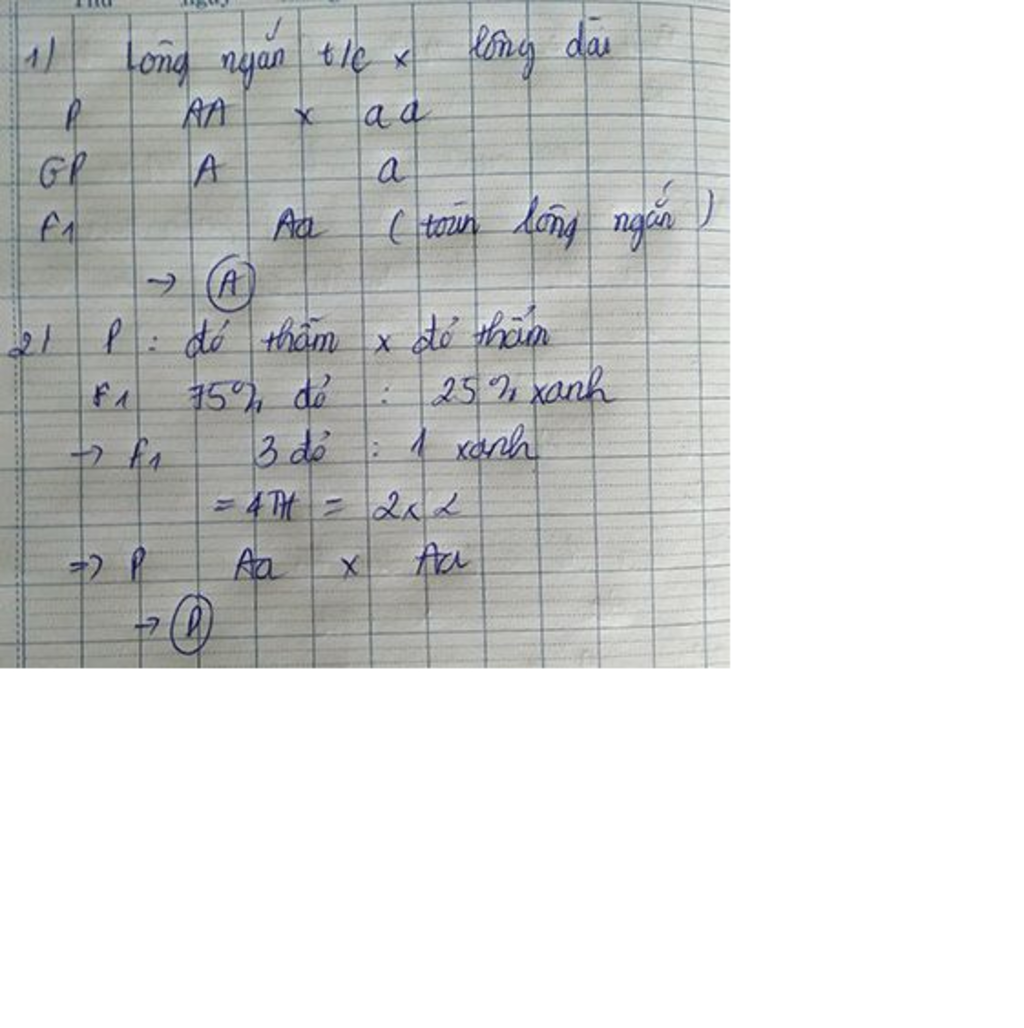 Thứ ngày
1) Lông ngắn t/c x lông dài
P AA x aa
GP A a
F1 Aa (toàn lông ngắn)
→ A
2) P : đỏ thẫm x đỏ thẫm
F1 75% đỏ : 25% xanh
→ F1 3 đỏ : 1 xanh
= 4TH = 2x2
=> P Aa x Aa
→